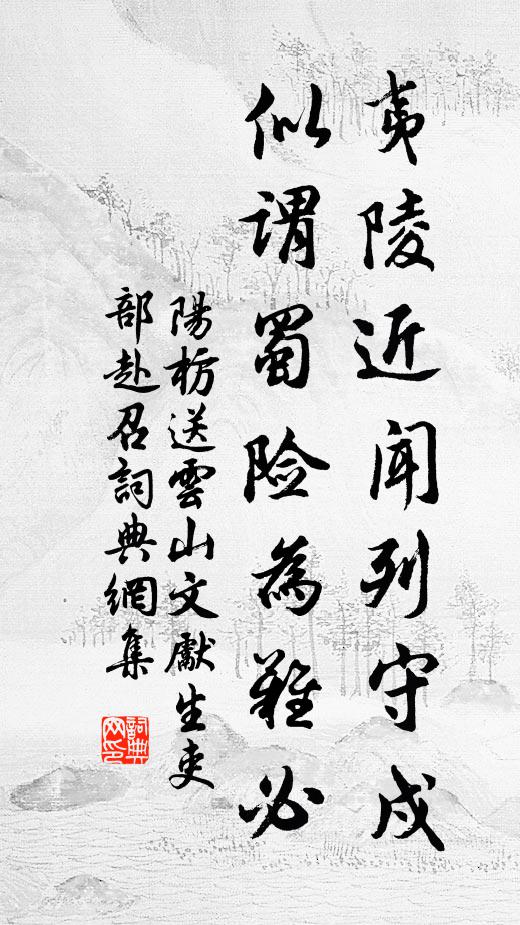 夷陵近闻列守戍
似谓蜀险为難必
陽枋送雲山文獻生吏
部赴召詞典網集
詞典
网印